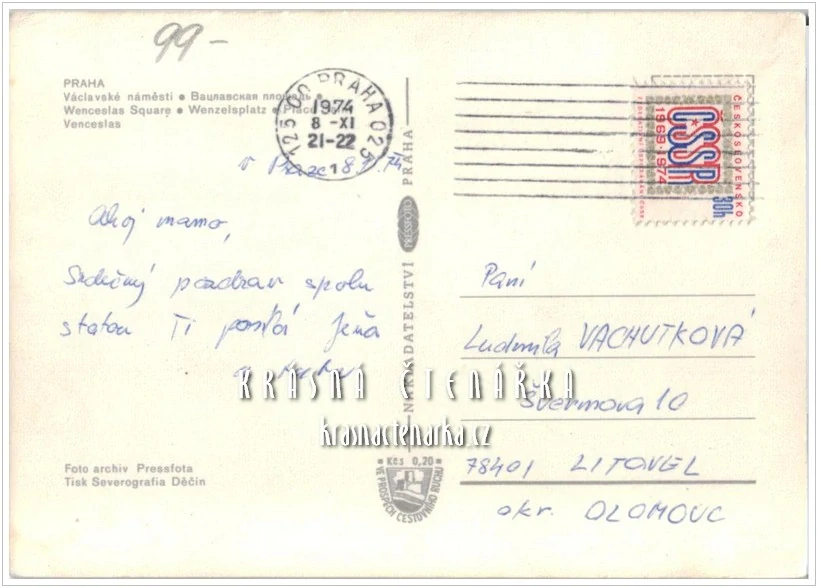 99-
PRAHA
Václavské náměstí • Вацлавская площадь •
Wenceslas Square • Wenzelsplatz • Place
Venceslas
125 00 PRAHA 025
1974
8 -XI
21-22
1
ČESKOSLOVENSKO
ČSSR
1969·1974
30h
v Praze 8.
Ahoj mamo,
Srdečný pozdrav spolu
s tatou Ti posílá Jena
a
NAKLADATELSTVÍ PRESSFOTO PRAHA
Paní
Ludmila VACHUTKOVÁ
Švermova 10
78401 LITOVEL
okr. OLOMOUC
KRÁSNÁ ČTENÁŘKA
krasnactenarka.cz
Foto archiv Pressfota
Tisk Severografia Děčín
Kčs 0,20
VE PROSPĚCH CESTOVNÍHO RUCHU